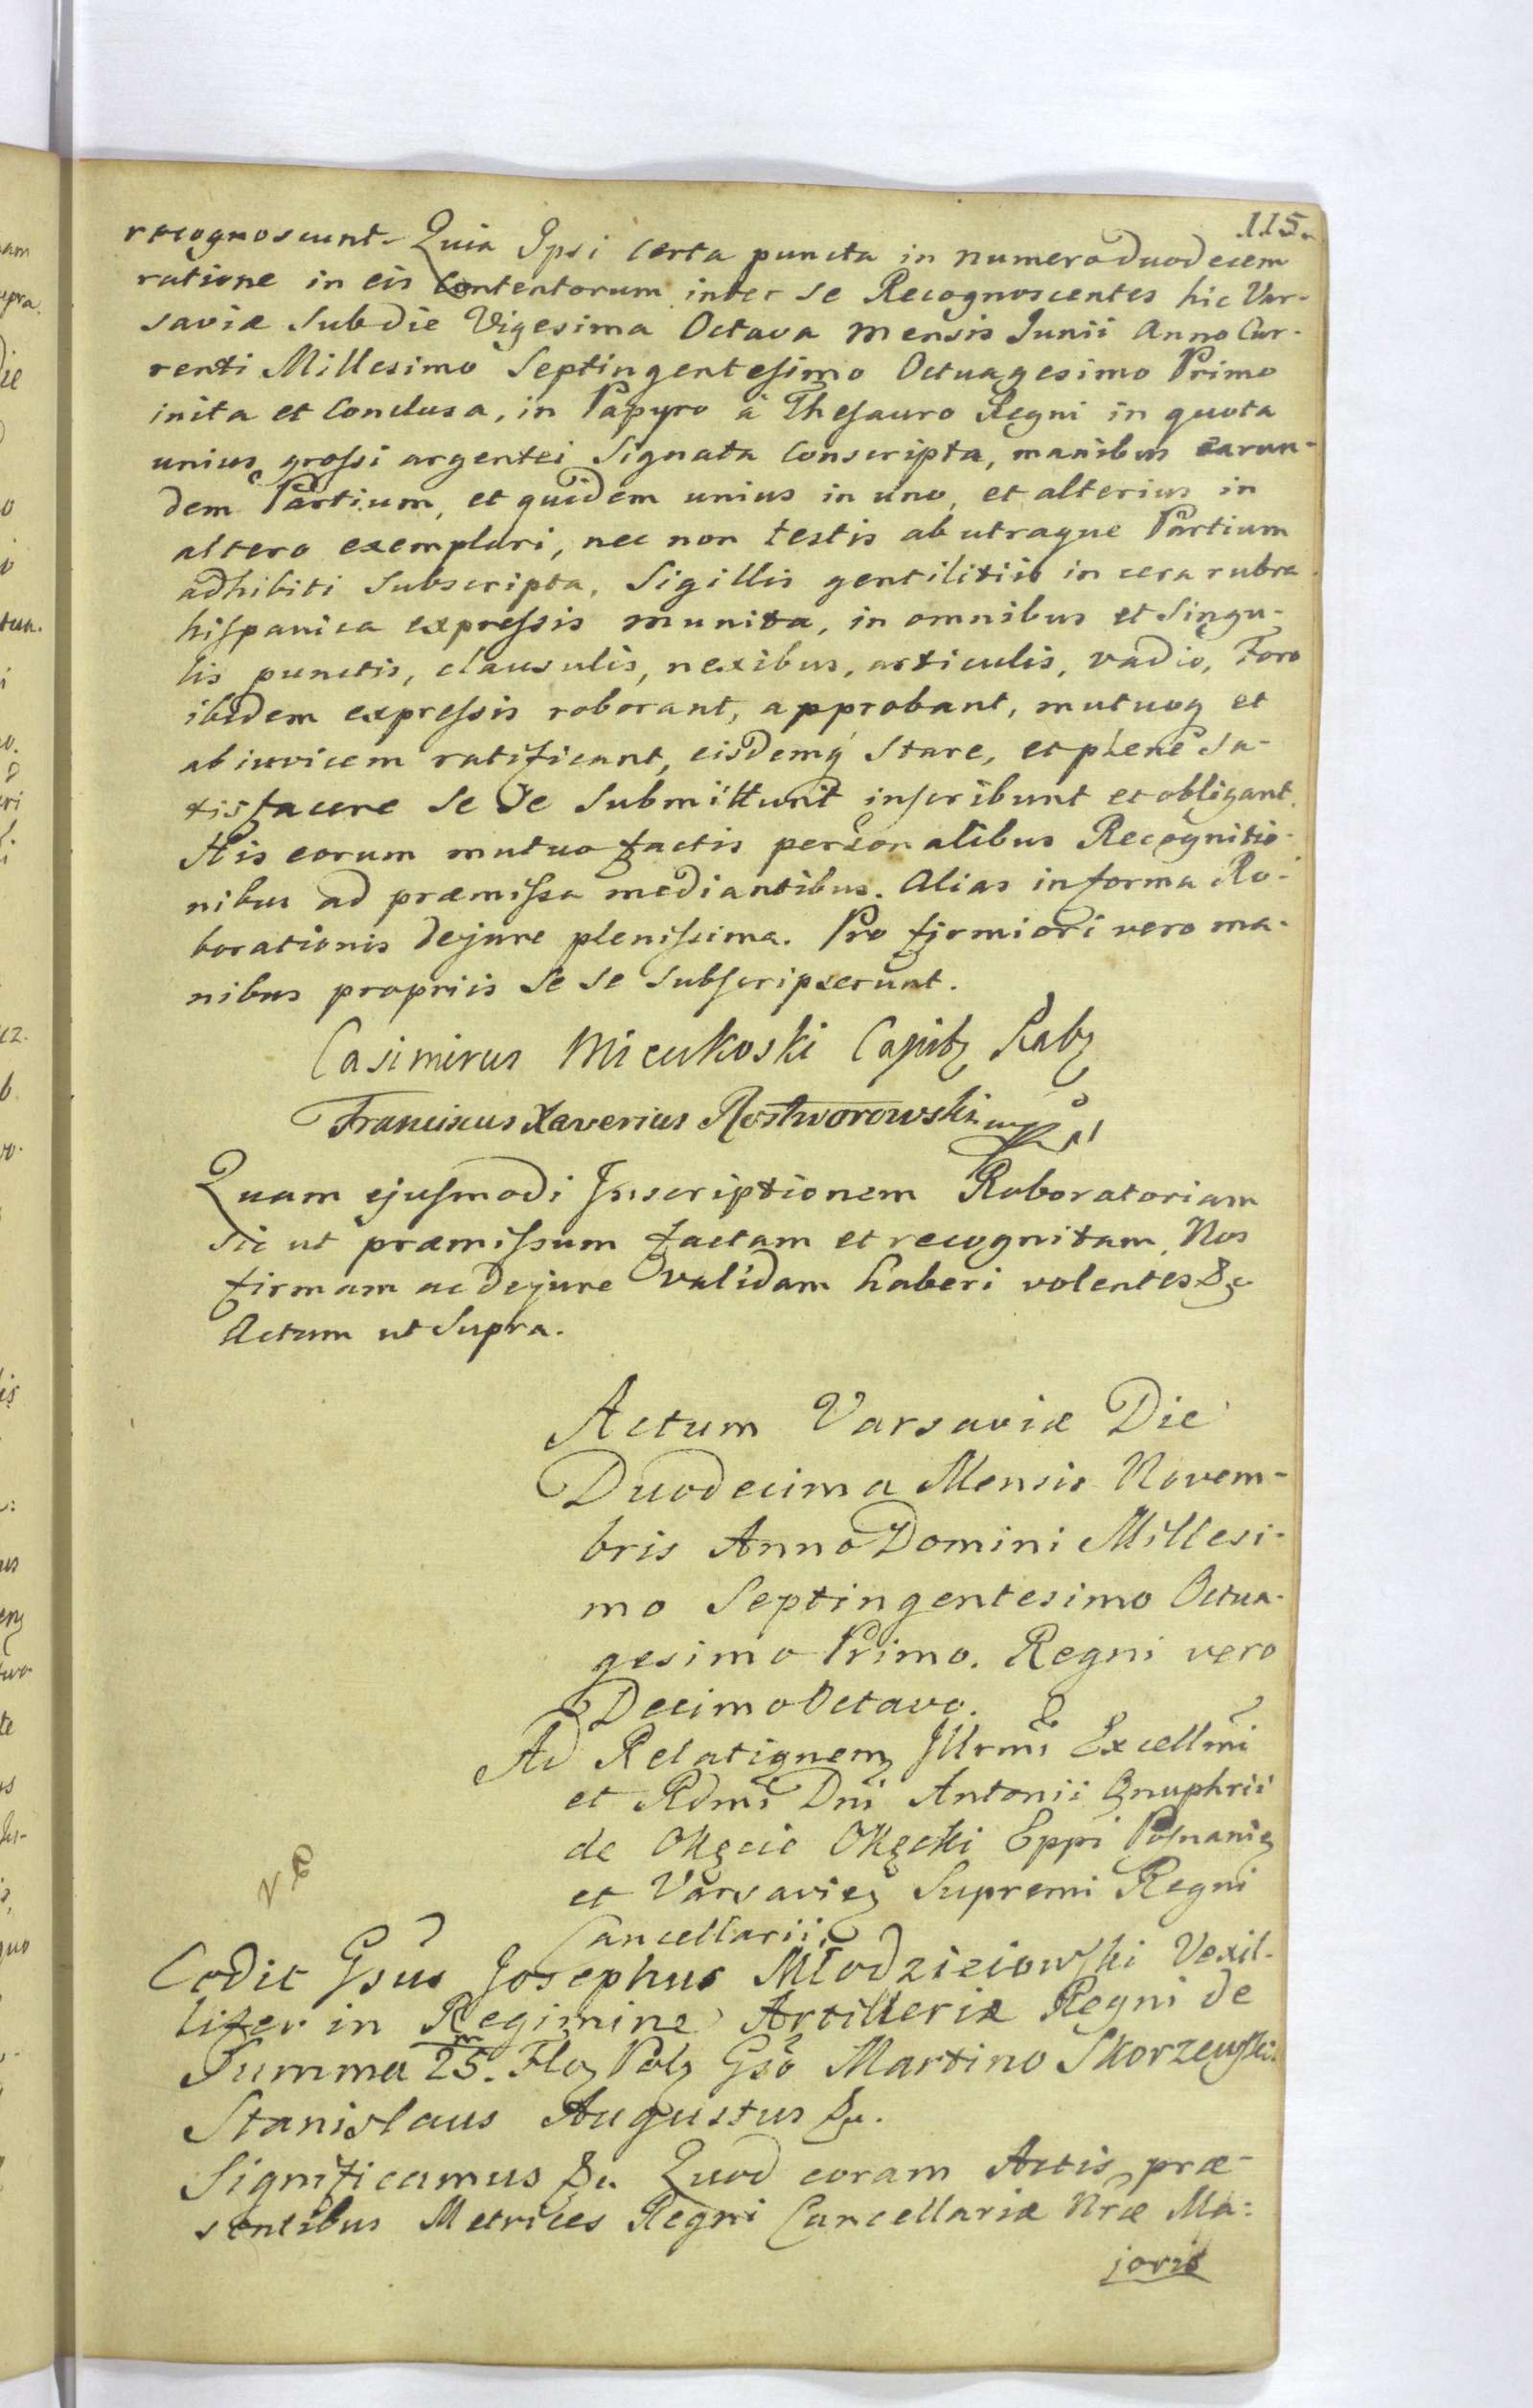 115.
recognoscunt. Quia Ipsi certa puncta in numero duodecem
ratione in eis Contentorum inter se Recognoscentes hic Var-
saviæ Sub die Vigesima Octava Mensis Junii Anno Cur-
renti Millesimo Septingentesimo Octuagesimo Primo
inita et Conclusa, in Papyro à Thesauro Regni in quota
unius grossi argentei Signata Conscripta, manibus earun-
dem Partium, et quidem unius in uno, et alterius in
altero exemplari, nec non testis ab utraque Partium
adhibiti Subscripta, Sigillis gentilitiis in cera rubra
hispanica expressis munita, in omnibus et Singu-
lis punctis, clausulis, nexibus, articulis, vadio, Foro
ibidem expressis roborant, approbant, mutuoq et
ab invicem ratificant, eisdemq Stare, et plene Sa-
tisfacere Se Se Submittunt inscribunt et obligant.
His eorum mutuo factis personalibus Recognitio-
nibus ad præmissa mediantibus. Alias in forma Ro-
borationis de jure plenissima. Pro firmiori vero ma-
nibus propriis Se Se Subscripserunt.
Casimirus Micukoski Capitz Rabz
Franciscus Xaverius Rostworowski mp
Quam ejusmodi Inscriptionem Roboratoriam
Sic ut præmissum factam et recognitam, Nos
firmam ac de jure validam haberi volentes &c
Actum ut Supra.
Actum Varsaviæ Die
Duodecima Mensis Novem-
bris Anno Domini Millesi-
mo Septingentesimo Octua-
gesimo Primo. Regni vero
Decimo Octavo.
Ad Relationem Illrmi Excellmi
et Rdmi Dni Antonii Onuphrii
de Okęcie Okęcki Eppi Posnaniez
et Varsaviez Supremi Regni
Cancellarii.
Cedit Gsus Josephus Młodzieiowski Vexil-
lifer in Regimine Artilleriæ Regni de
Summa 25.m Floz Polz Gso Martino Skorzewski.
Stanislaus Augustus &c.
Significamus &c. Quod coram Actis præ-
sentibus Metrices Regni Cancellariæ Nræ Ma-
joris